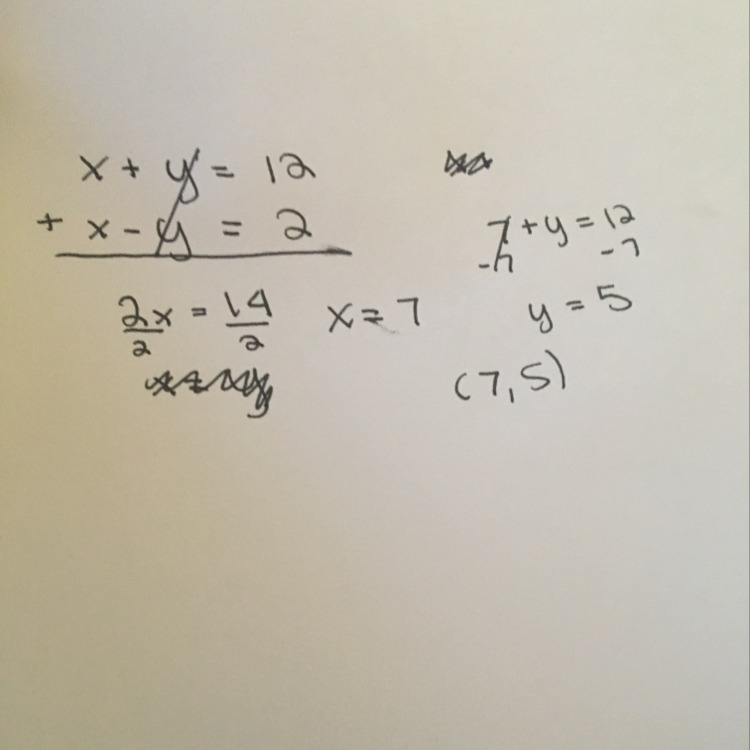 x + y = 12
+ x - y = 2
2x = 14 x = 7
2 2
7 + y = 12
-7 -7
y = 5
(7,5)